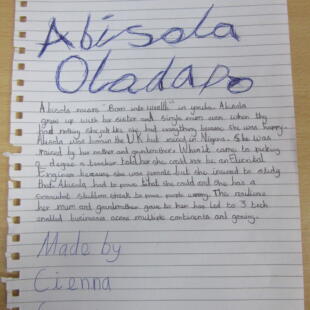 Abisola
Oladapo
Abisola means "Born into wealth" in yoruba. Abisola
grew up with her sister and single mum even when they
had nothing she felt like she had everything because she was happy.
Abisola was born in the UK but raised in Nigeria. She was
raised by her mother and grandmother. When it came to picking
a degree a teacher told her she could not be an Electrical
Engineer because she was female but she insured to study
that. Abisola had to prove that she could and she has a
somewhat stubborn streak to prove people wrong. The resilience
her mum and grandmother gave to her has led to 3 tech
enabled businesses across multiple continents and
Made by
Cienna